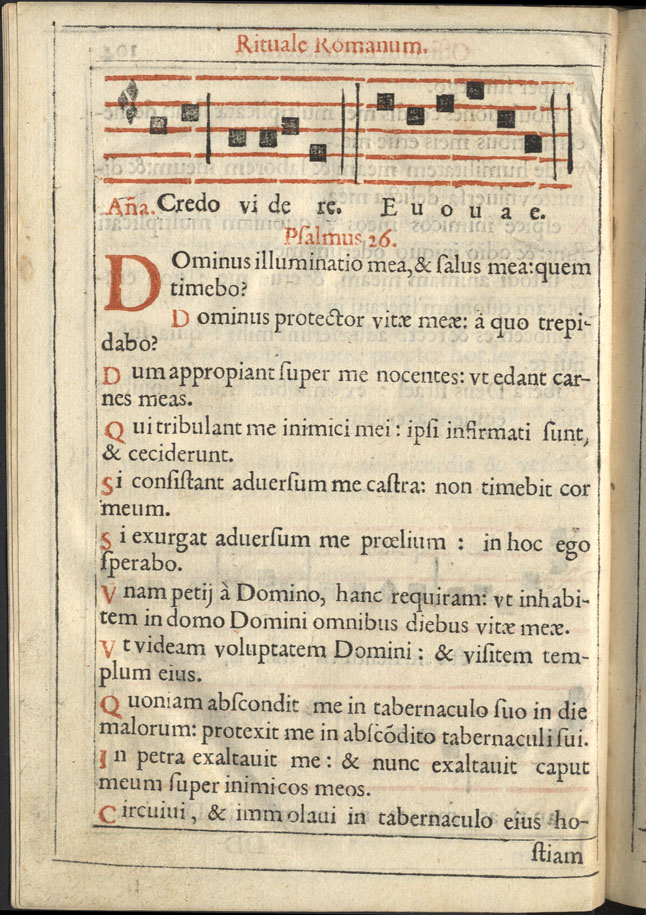 Rituale Romanum.
Aña. Credo vi de re. E u o u a e.
Psalmus 26.
DOminus illuminatio mea, & ſalus mea: quem
timebo?
Dominus protector vitæ meæ: à quo trepi-
dabo?
Dum appropiant ſuper me nocentes: vt edant car-
nes meas.
Qui tribulant me inimici mei: ipſi infirmati ſunt,
& ceciderunt.
Si conſiſtant aduerſum me caſtra: non timebit cor
meum.
Si exurgat aduerſum me prœlium: in hoc ego
ſperabo.
Vnam petij à Domino, hanc requiram: vt inhabi-
tem in domo Domini omnibus diebus vitæ meæ.
Vt videam voluptatem Domini: & viſitem tem-
plum eius.
Quoniam abſcondit me in tabernaculo ſuo in die
malorum: protexit me in abſcõdito tabernaculi ſui.
In petra exaltauit me: & nunc exaltauit caput
meum ſuper inimicos meos.
Circuiui, & immolaui in tabernaculo eius ho-
ſtiam